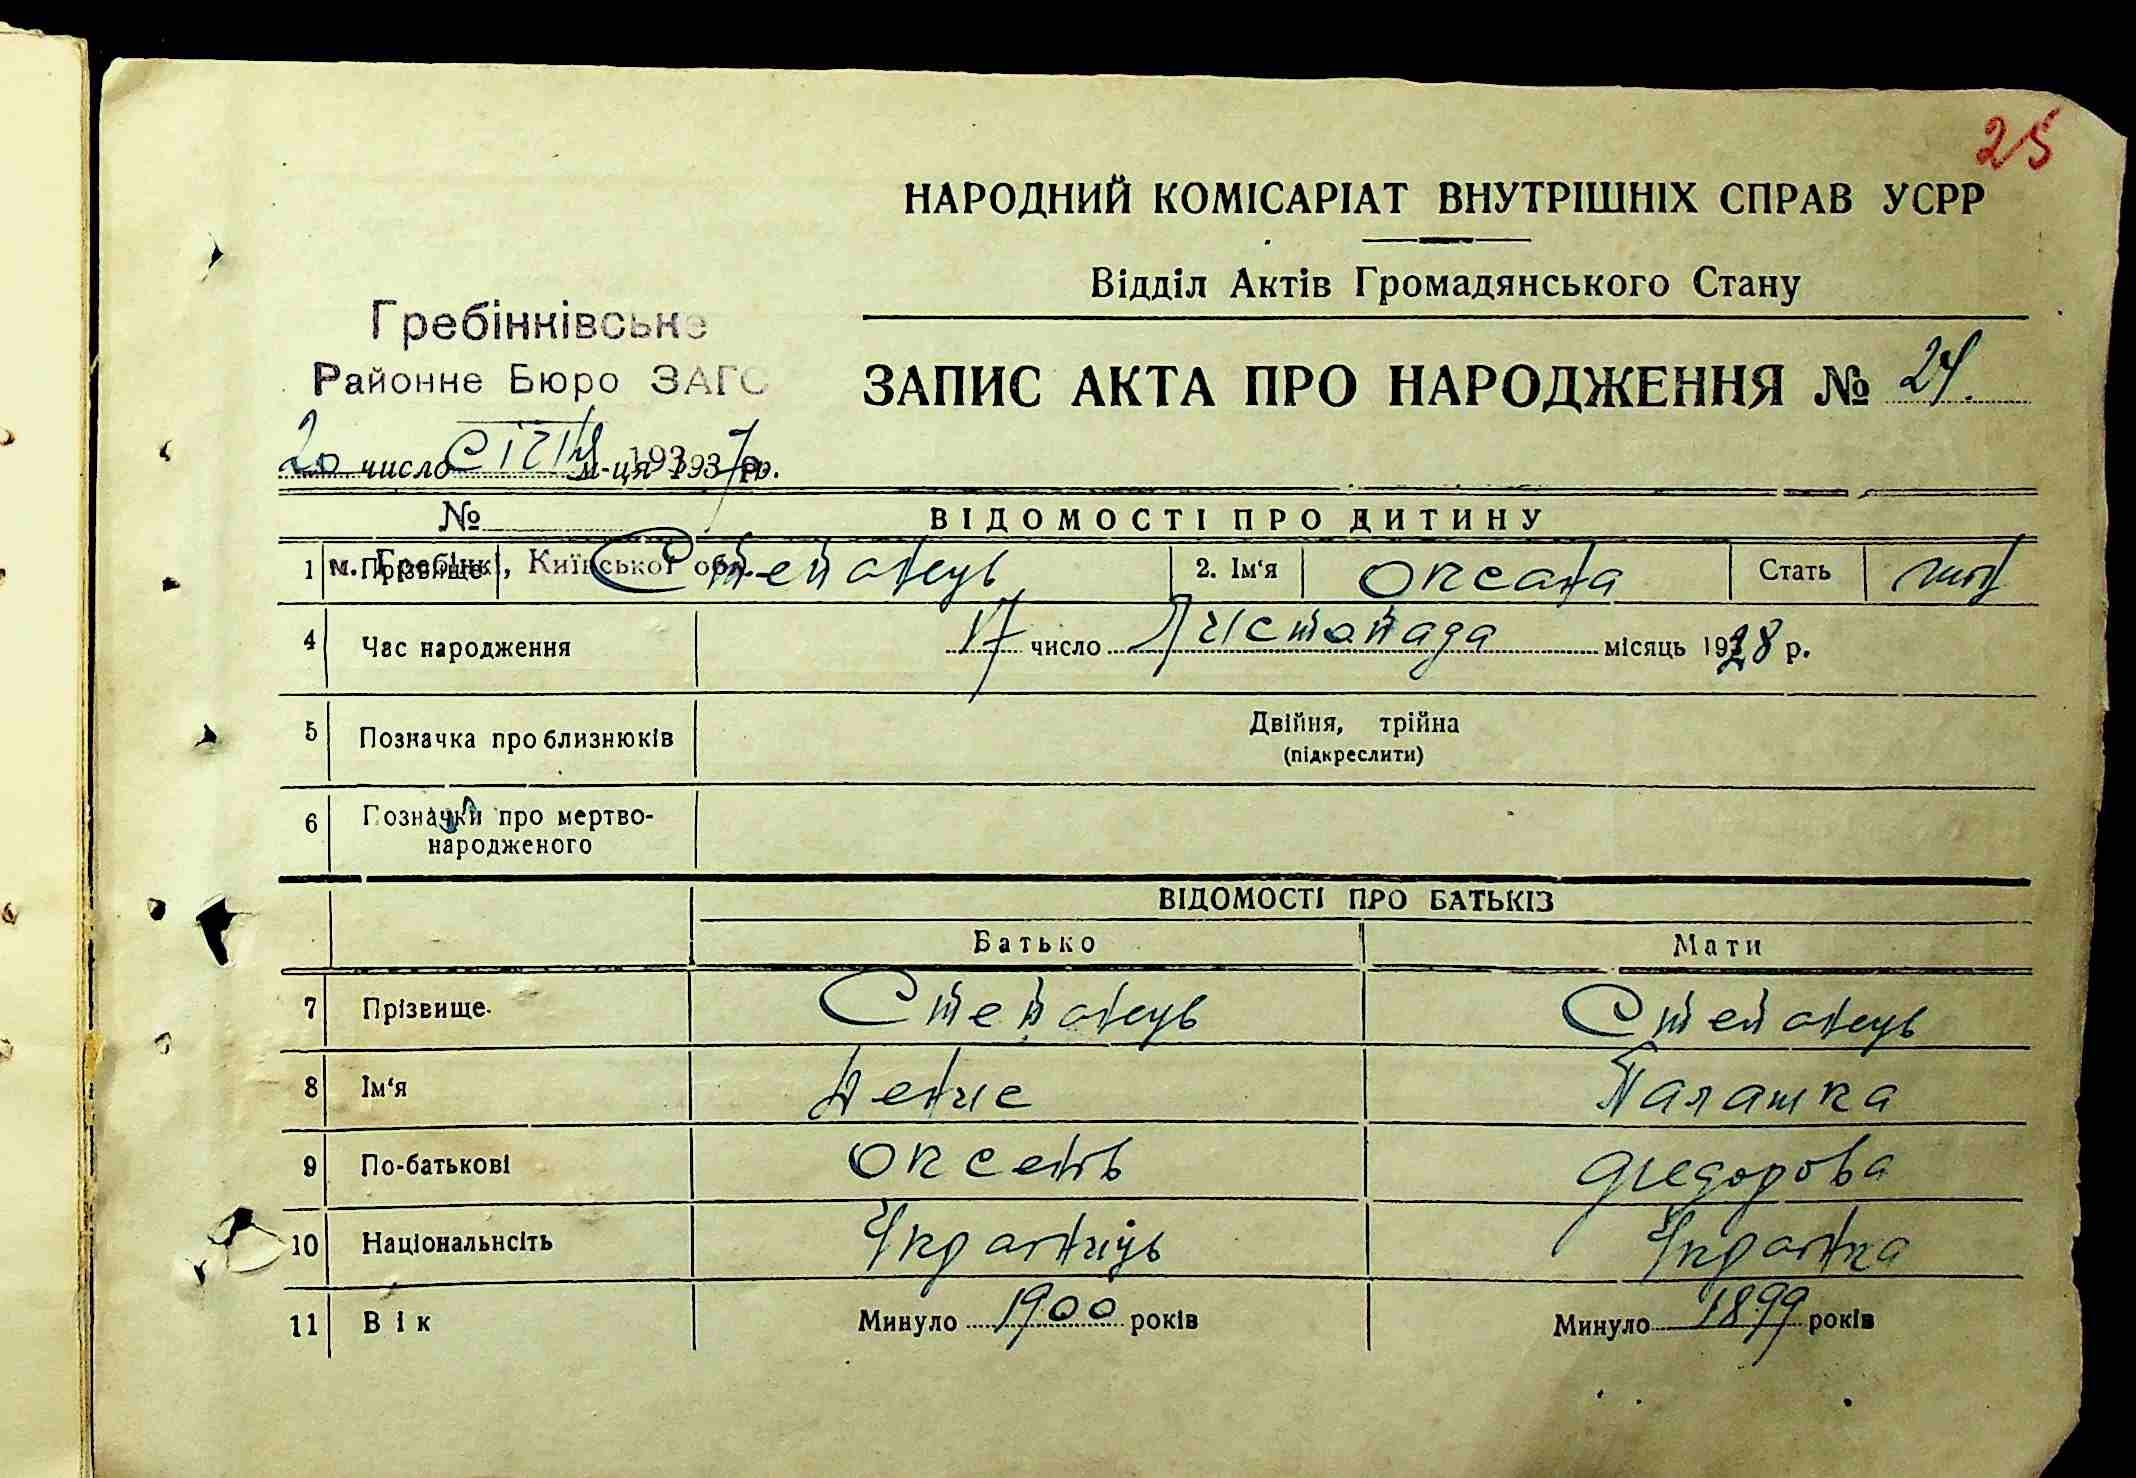 25
НАРОДНИЙ КОМІСАРІАТ ВНУТРІШНІХ СПРАВ УСРР
Відділ Актів Громадянського Стану
Гребінківське
Районне Бюро ЗАГС
ЗАПИС АКТА ПРО НАРОДЖЕННЯ № 24.
20 число січня м-ця 1937 р.
193 р.
№
м. Гребінкі, Київської обл.
ВІДОМОСТІ ПРО ДИТИНУ
1 Прізвище Степанець 2. Ім‘я Оксана Стать жін
4 Час народження 17 число Листопада місяць 1928 р.
5 Позначка про близнюків Двійня, трійна
(підкреслити)
6 Позначки про мертво-
народженого
ВІДОМОСТІ ПРО БАТЬКІЗ
Батько Мати
7 Прізвище Степанець Степанець
8 Ім‘я Денис Палашка
9 По-батькові Оксент Федорова
10 Національнсіть Українець Українка
11 Вік Минуло 1900 років Минуло 1899 років